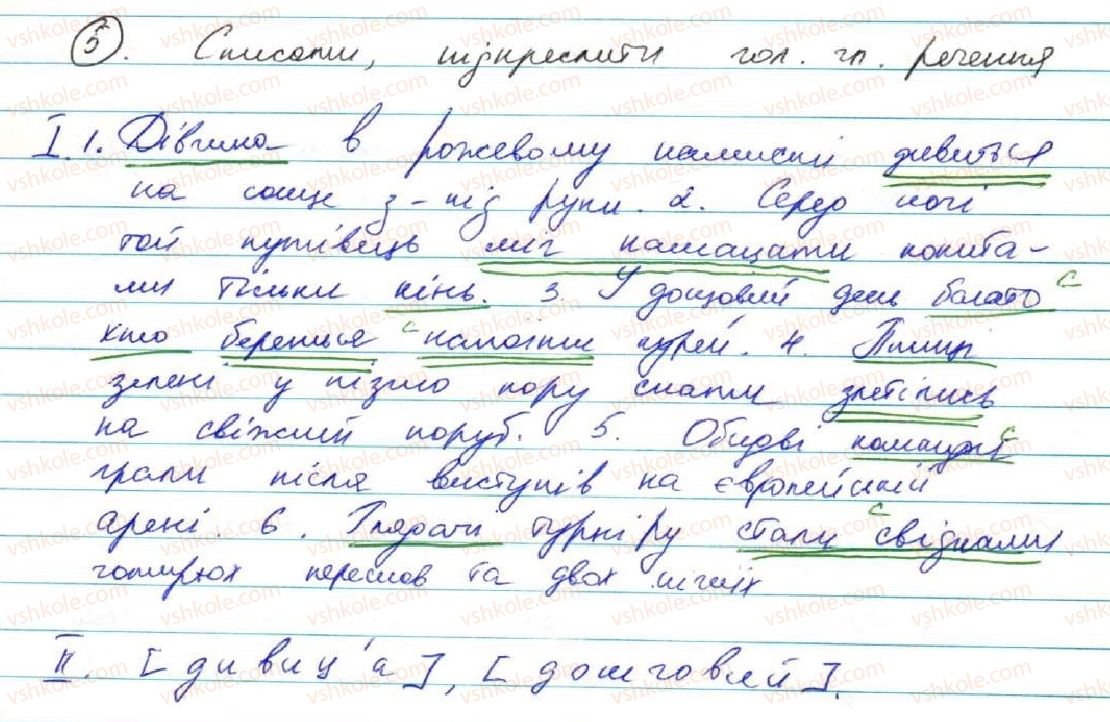 5. Списати, підкреслити гол. чл. речення
I. 1. Дівчина в рожевому намисті дивиться
на сонце з-під руки. 2. Серед ночі
той путівець міг намацати копита-
ми тільки кінь. 3. У дощовий день багато с
хто береться с написати курей. 4. Птиці
зелені у пізню пору спати злетілись
на свіжий поруб. 5. Обидві команди с
грали після виступів на європейській
арені. 6. Глядачі турніру стали с свідками
чотирьох перемов та двох нічиїх
II. [дивиц'а], [дошчовий].